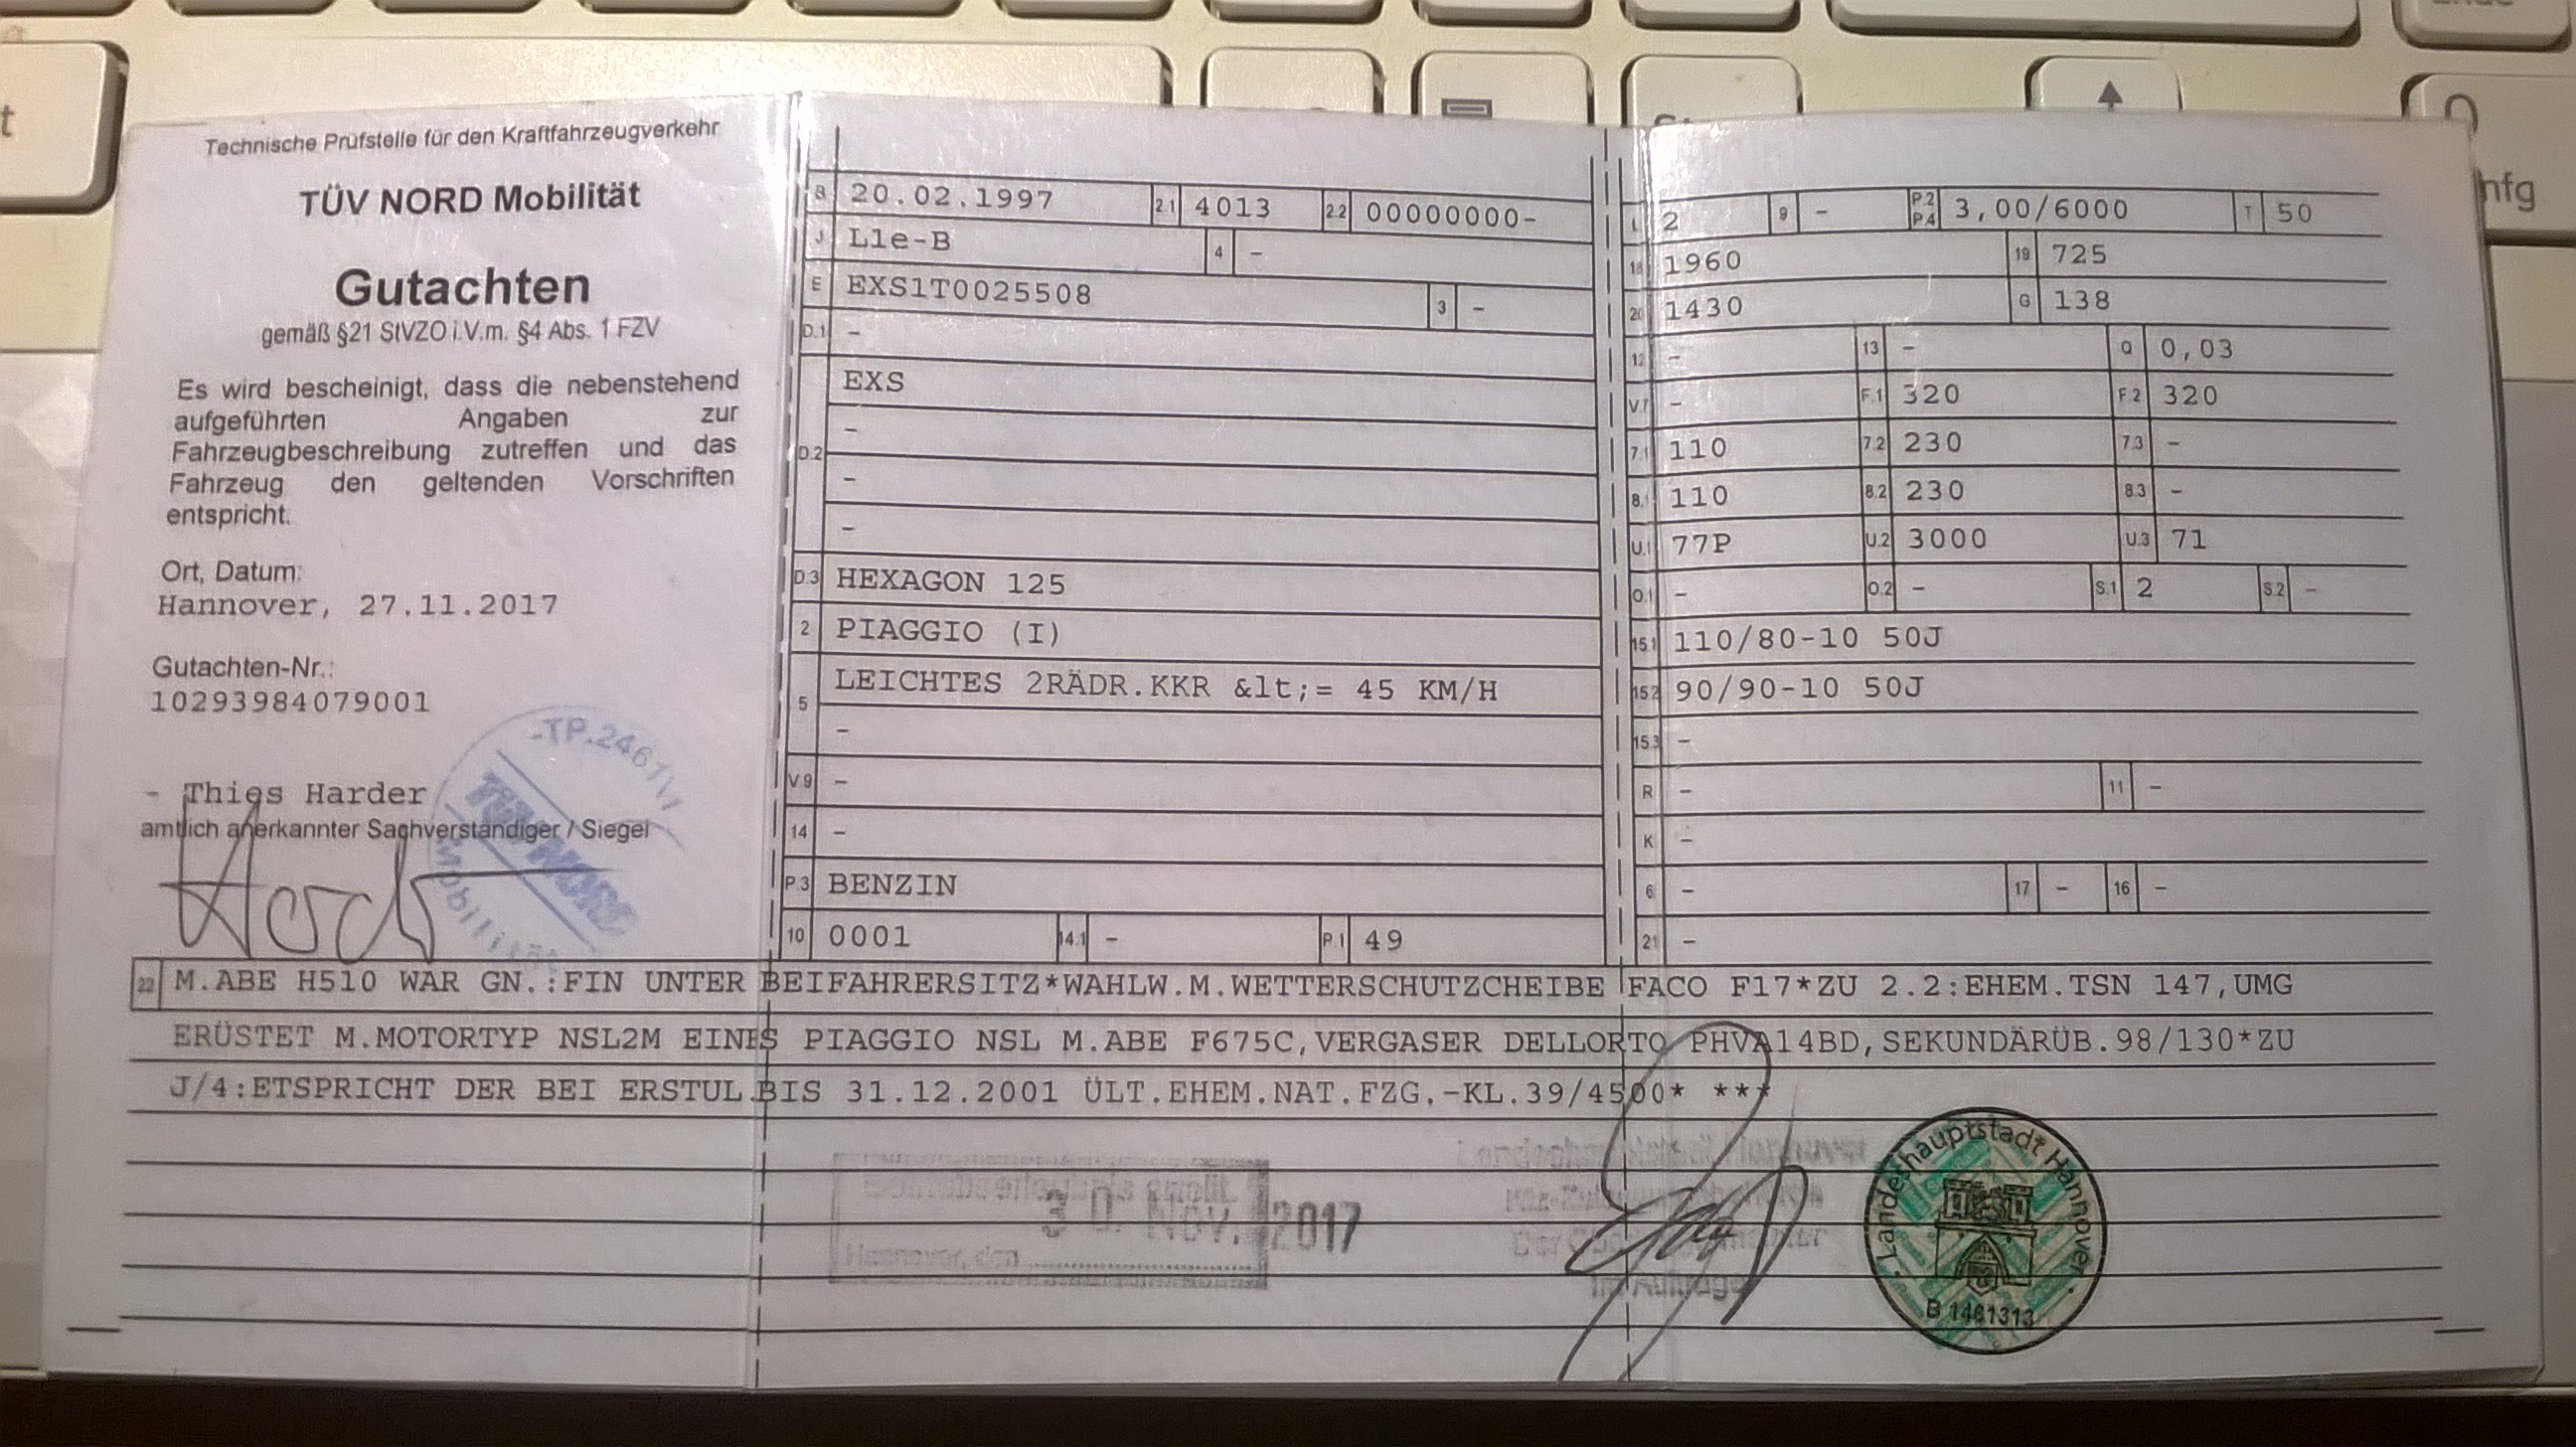 Technische Prüfstelle für den Kraftfahrzeugverkehr
TÜV NORD Mobilität
Gutachten
gemäß §21 StVZO i.V.m. §4 Abs. 1 FZV
Es wird bescheinigt, dass die nebenstehend
aufgeführten Angaben zur
Fahrzeugbeschreibung zutreffen und das
Fahrzeug den geltenden Vorschriften
entspricht.
Ort, Datum:
Hannover, 27.11.2017
Gutachten-Nr.:
10293984079001
- Thies Harder
amtlich anerkannter Sachverständiger / Siegel
TÜV NORD
Mobilität
B 20.02.1997 2.1 4013 2.2 00000000-
J L1e-B 4 -
E EXS1T0025508 3 -
D.1 -
D.2 EXS
-
-
-
D.3 HEXAGON 125
2 PIAGGIO (I)
5 LEICHTES 2RÄDR.KKR &lt;= 45 KM/H
-
V.9 -
14 -
P.3 BENZIN
10 0001 14.1 - P.1 49
L 2 9 - P.2 P.4 3,00/6000 T 50
18 1960 19 725
20 1430 G 138
12 - 13 - Q 0,03
V.7 - F.1 320 F.2 320
7.1 110 7.2 230 7.3 -
8.1 110 8.2 230 8.3 -
U.1 77P U.2 3000 U.3 71
O.1 - O.2 - S.1 2 S.2 -
15.1 110/80-10 50J
15.2 90/90-10 50J
15.3 -
R - 11 -
K -
6 - 17 - 16 -
21 -
22 M.ABE H510 WAR GN.:FIN UNTER BEIFAHRERSITZ*WAHLW.M.WETTERSCHUTZCHEIBE FACO F17*ZU 2.2:EHEM.TSN 147,UMG
ERÜSTET M.MOTORTYP NSL2M EINES PIAGGIO NSL M.ABE F675C,VERGASER DELLORTO PHVA14BD,SEKUNDÄRÜB.98/130*ZU
J/4:ETSPRICHT DER BEI ERSTUL.BIS 31.12.2001 ÜLT.EHEM.NAT.FZG.-KL.39/4500* ***
30. Nov. 2017
Hannover, den
Landeshauptstadt Hannover
B 1461313